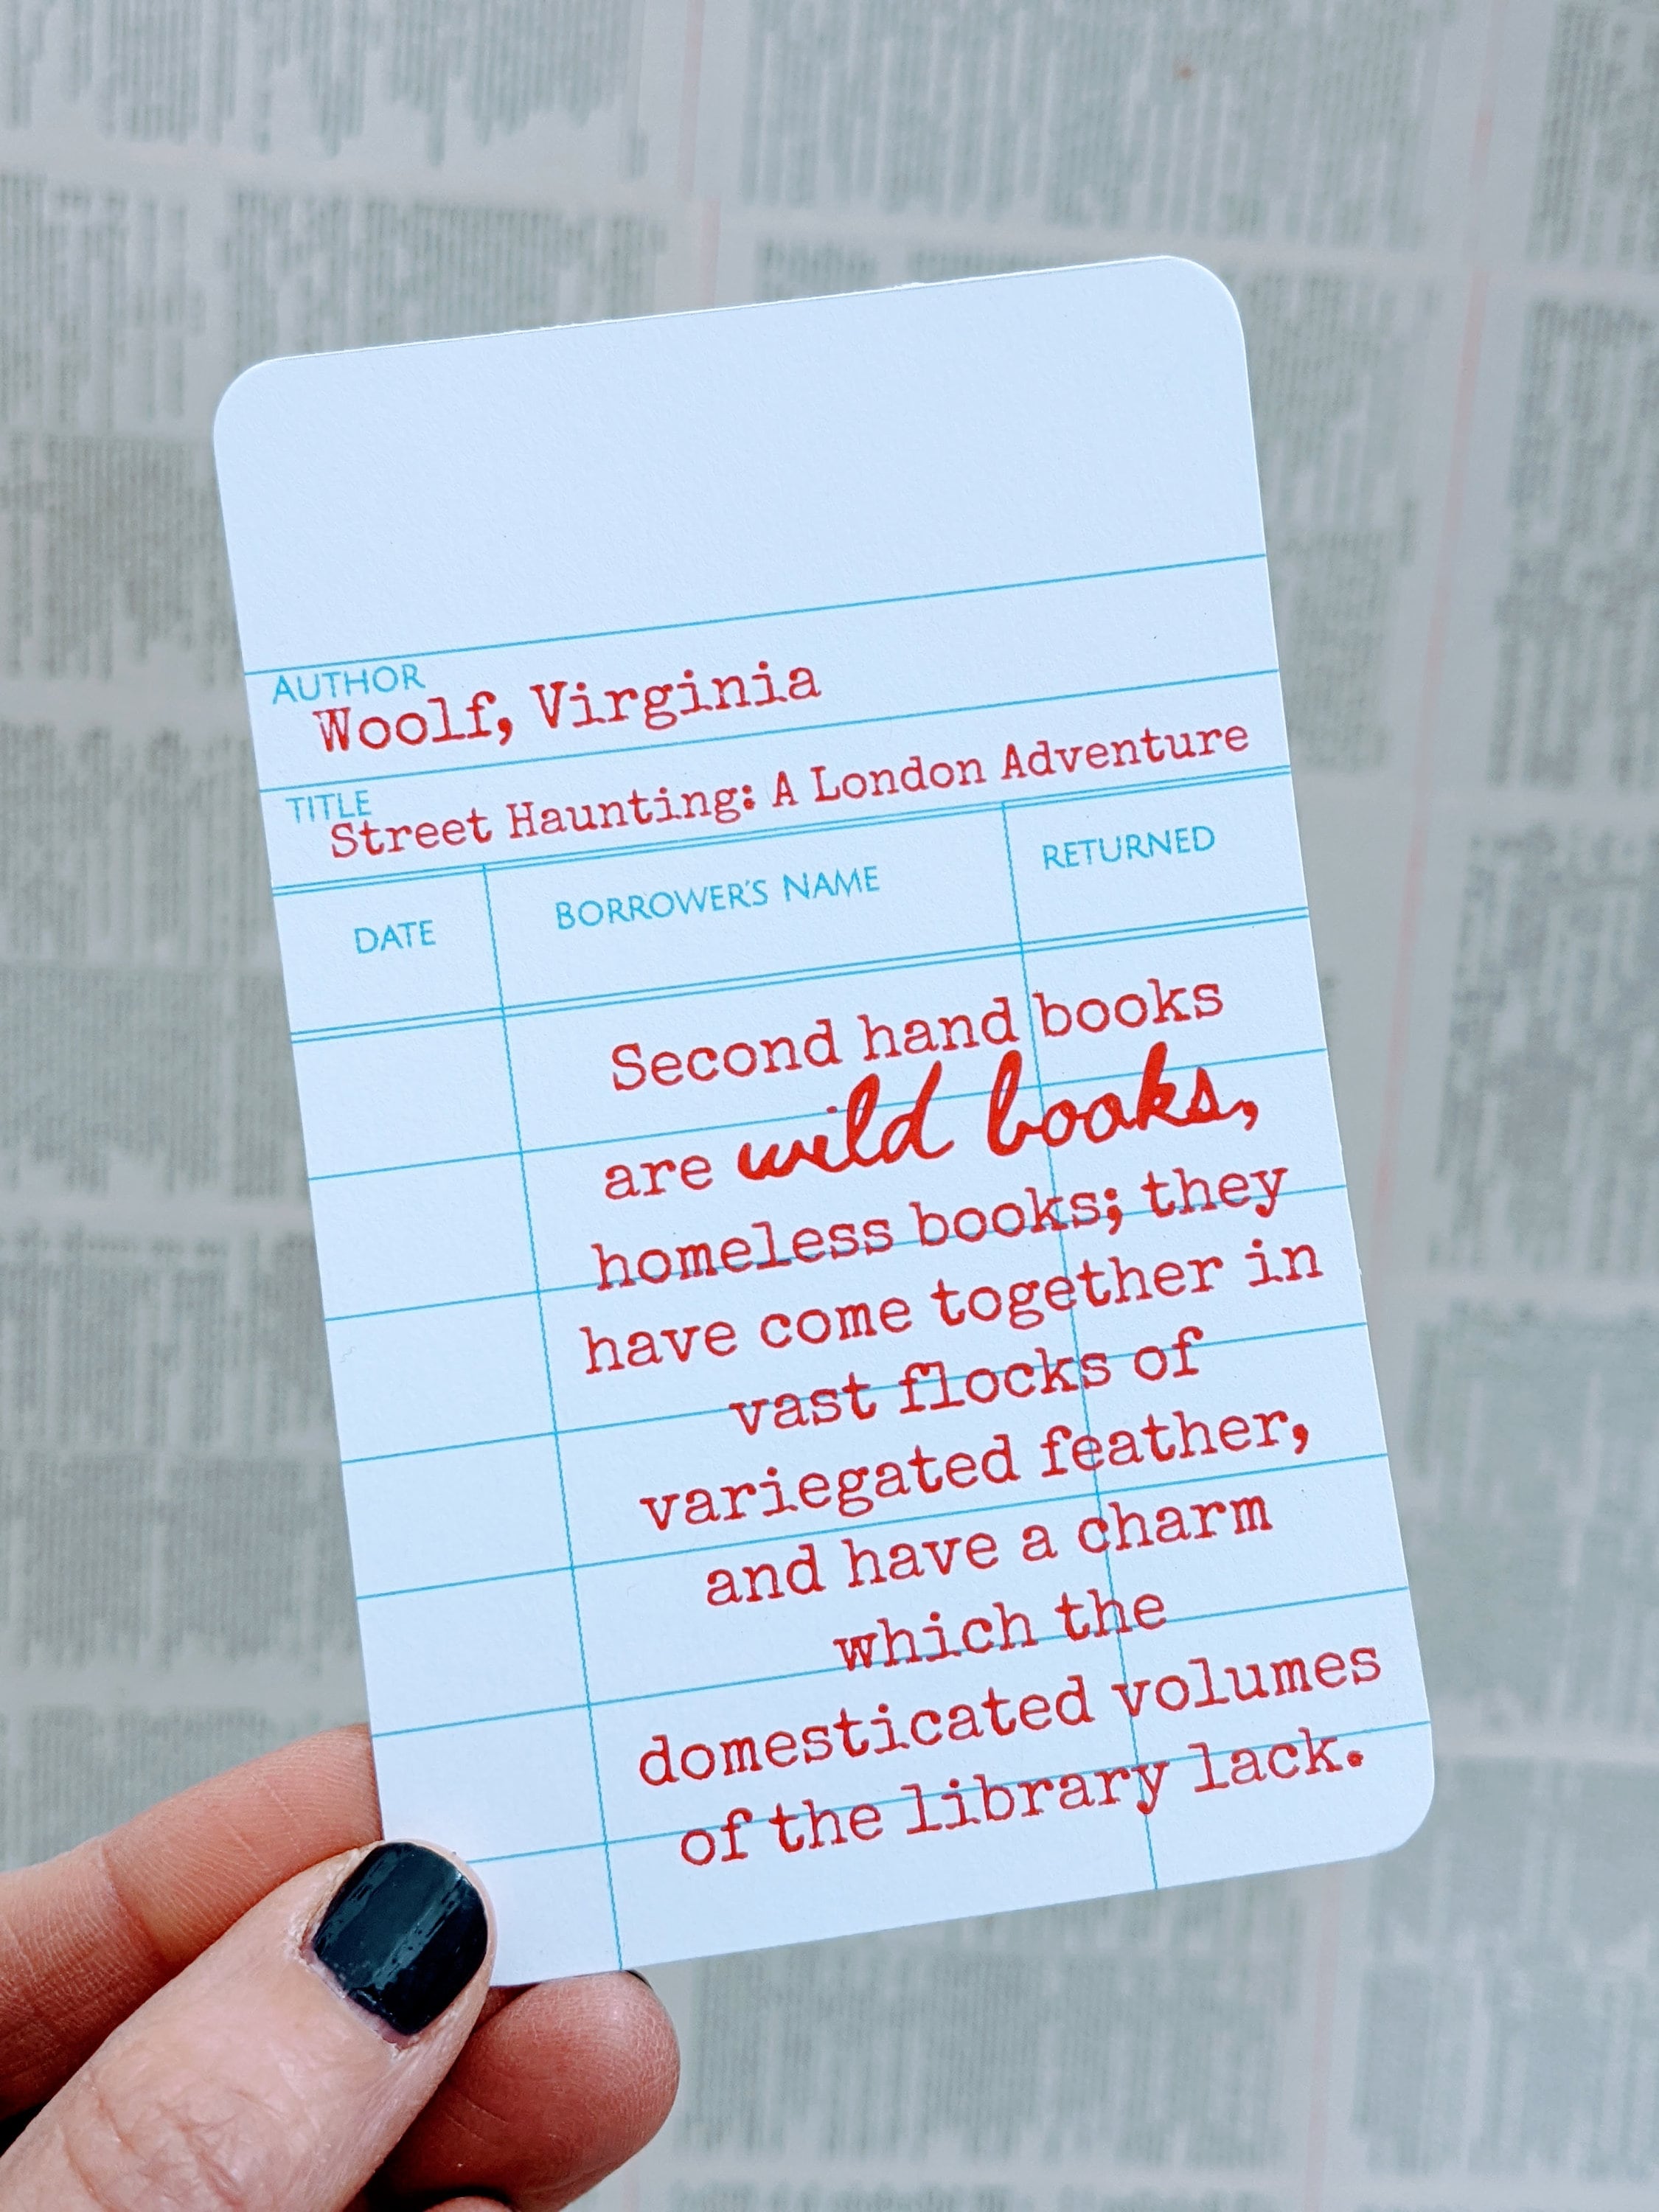 AUTHOR
Woolf, Virginia
TITLE
Street Haunting: A London Adventure
DATE BORROWER'S NAME RETURNED
Second hand books
are wild books,
homeless books; they
have come together in
vast flocks of
variegated feather,
and have a charm
which the
domesticated volumes
of the library lack.